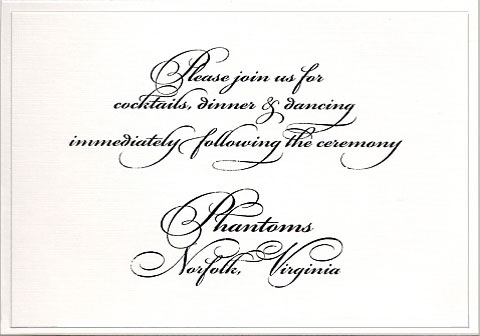 Please join us for
cocktails, dinner & dancing
immediately following the ceremony
Phantoms
Norfolk, Virginia